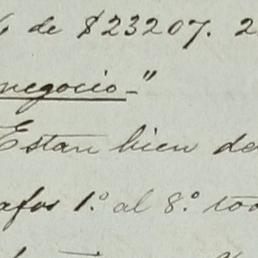 de $23207. 2
negocio_"
Estan bien de
afos 1.º al 8.º